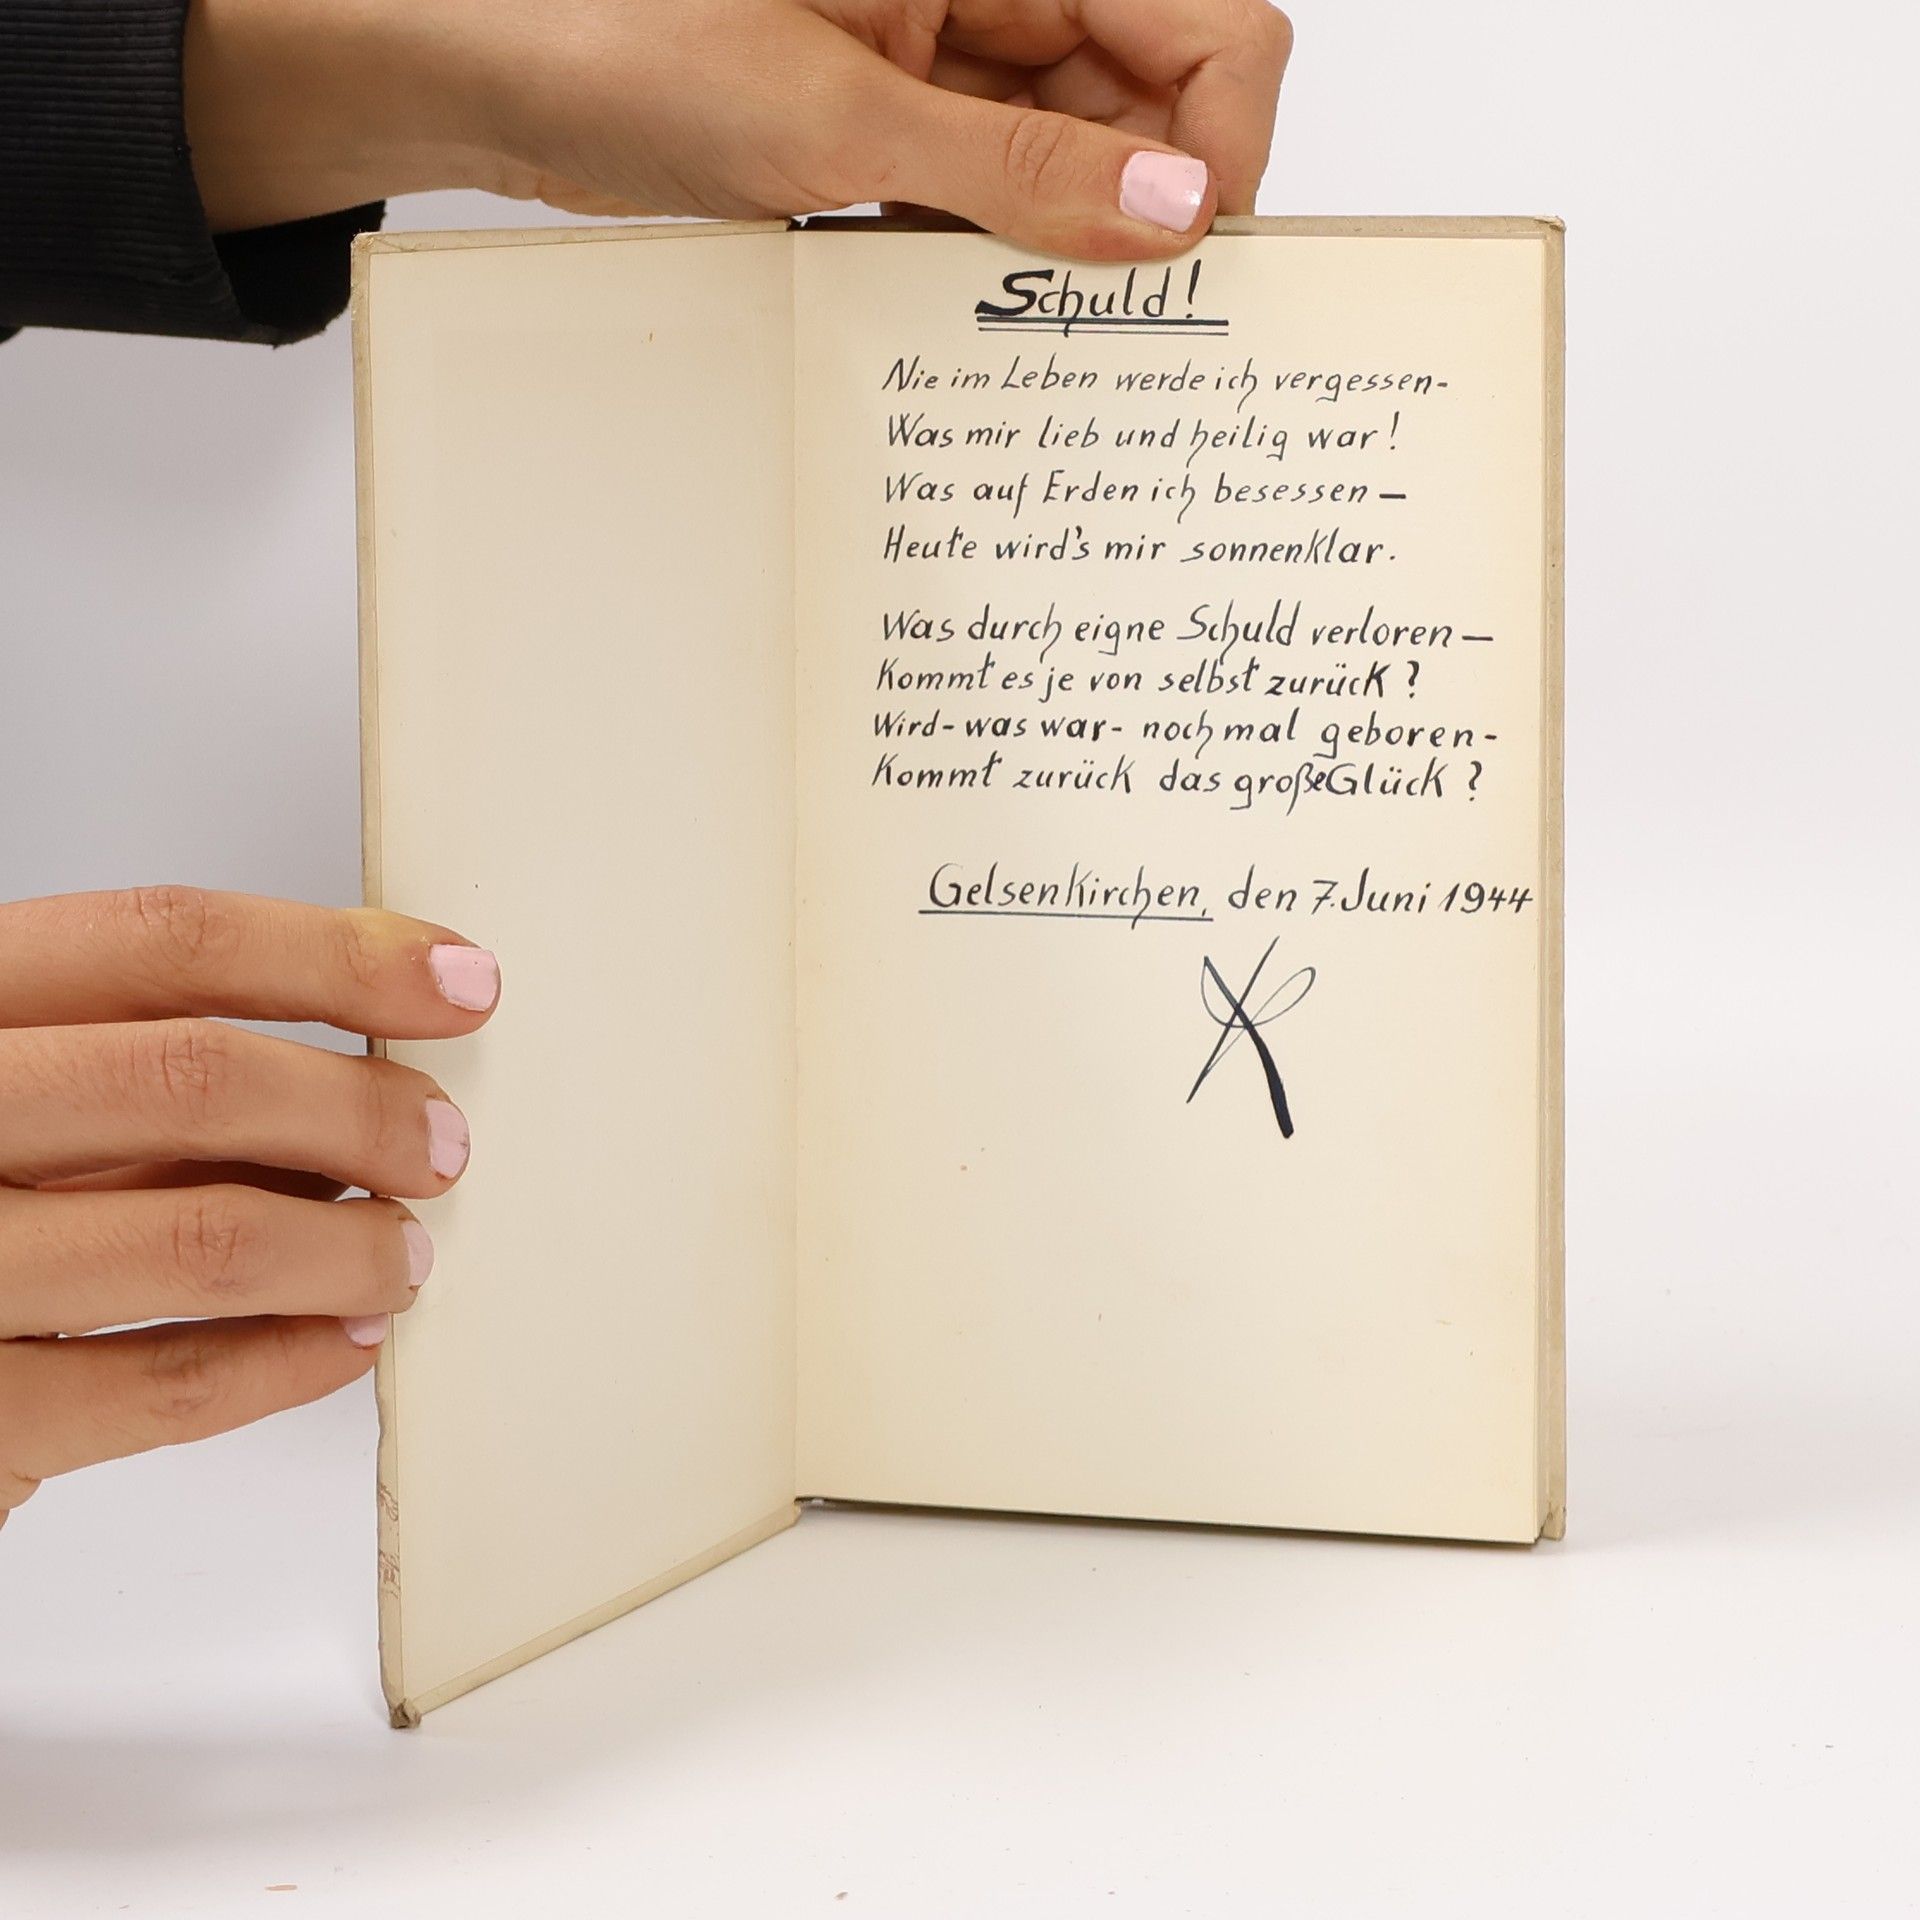 Schuld!
Nie im Leben werde ich vergessen-
Was mir lieb und heilig war!
Was auf Erden ich besessen —
Heute wird's mir sonnenklar.
Was durch eigne Schuld verloren —
Kommt es je von selbst zurück?
Wird - was war - nochmal geboren -
Kommt zurück das große Glück?
Gelsenkirchen, den 7. Juni 1944